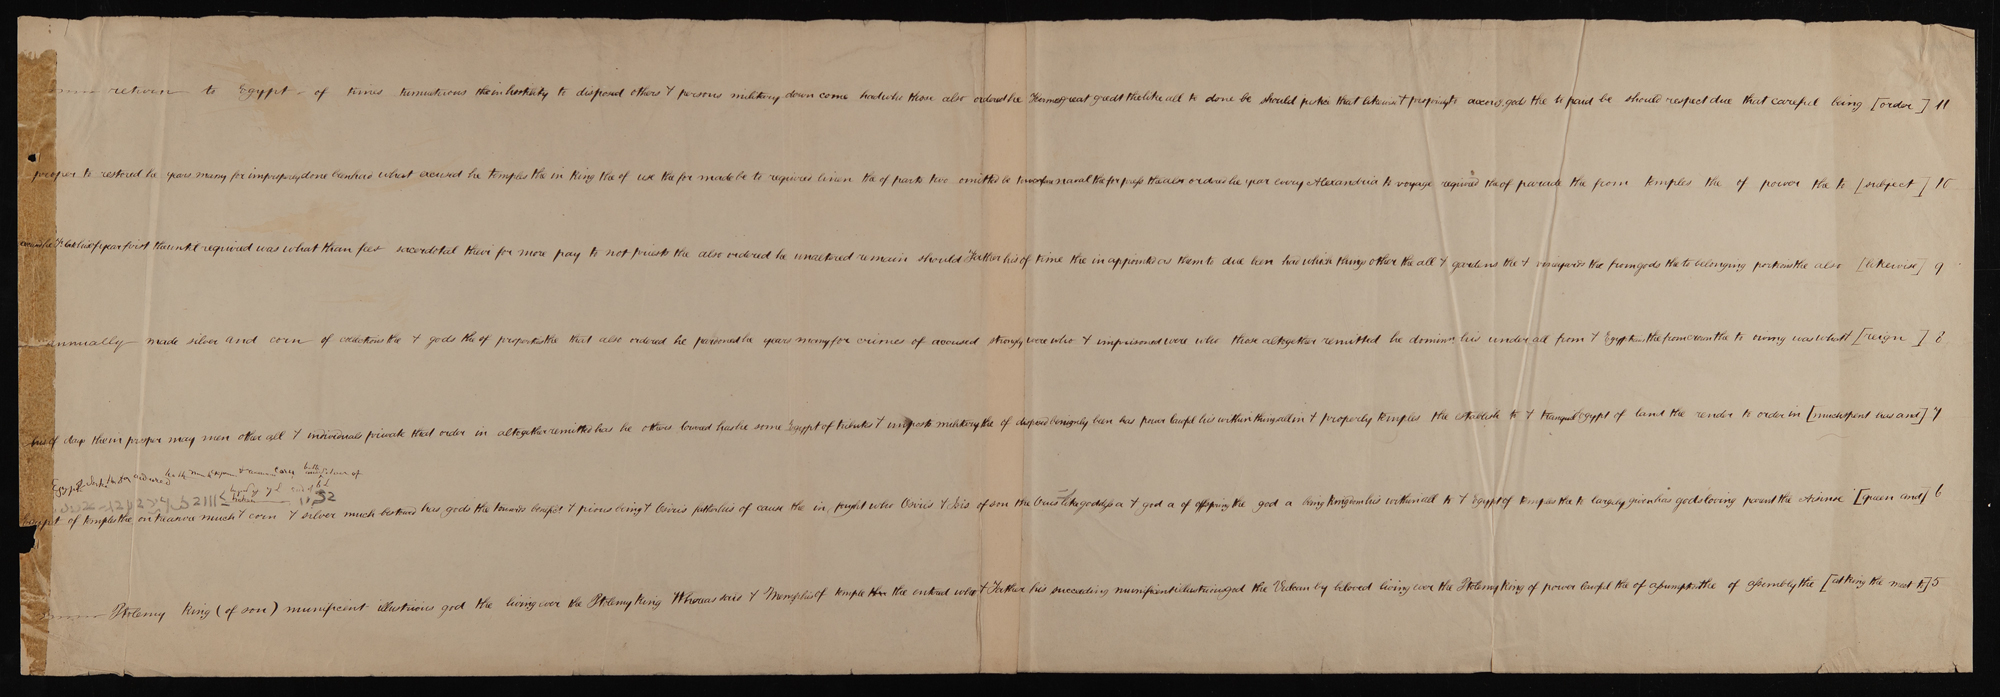 return to Egypt of times tumultuous the in hostility to disposed others & persons military down come had who those also ordered he Hermes great great the like all to done be should justice that likewise & propriety to accord. gods the to paid be should respect due that careful being [order] 11
proper to restored he years many for improperly done been had what excused he temples the in King the of use the for made be to required linen the of parts two omitted be to naval the for press the also ordered he year every Alexandria to voyage required the of parade the from temples the of power the to [subject] 10
& his of year first the until required was what than fees sacerdotal their for more pay to not priests the also ordered he unaltered remain should Father his of time the in appointed as them to due been had which things other the all & gardens the & vineyards the from gods the to belonging portions the also [likewise] 9
annually made silver and corn of collections the & gods the of properties the that also ordered he pardoned he years many for crimes of accused strongly were who & imprisoned were who those altogether remitted he dominion his under all from & Egyptians the from crown the to owing was what [reign] 8
his of days the in prosper may men other all & individuals private that order in altogether remitted has he others lowered has he some Egypt of tributes & imposts military the of disposed benignly been has power lawful his within things all in & properly temples the establish to & tranquil Egypt of land the render to order in [much spent was and] 7
Egypt of temples the on treasure much & corn & silver much bestowed has gods the towards benefit & pious being & Osiris father his of cause the in fought who Osiris & Isis of son the Orus like goddess a & god a of offspring the god a being kingdom his within all to & Egypt of temples the to largely given has gods loving parent the Arsinoe [queen and] 6
Ptolemy King (of son) munificent illustrious god the living ever the Ptolemy King Whereas said & Memphis of temple the entered who & Father his succeeding munificent illustrious god the Vulcan by beloved living ever the Ptolemy King of power lawful the of assumption the of assembly the [at King the meet to] 5